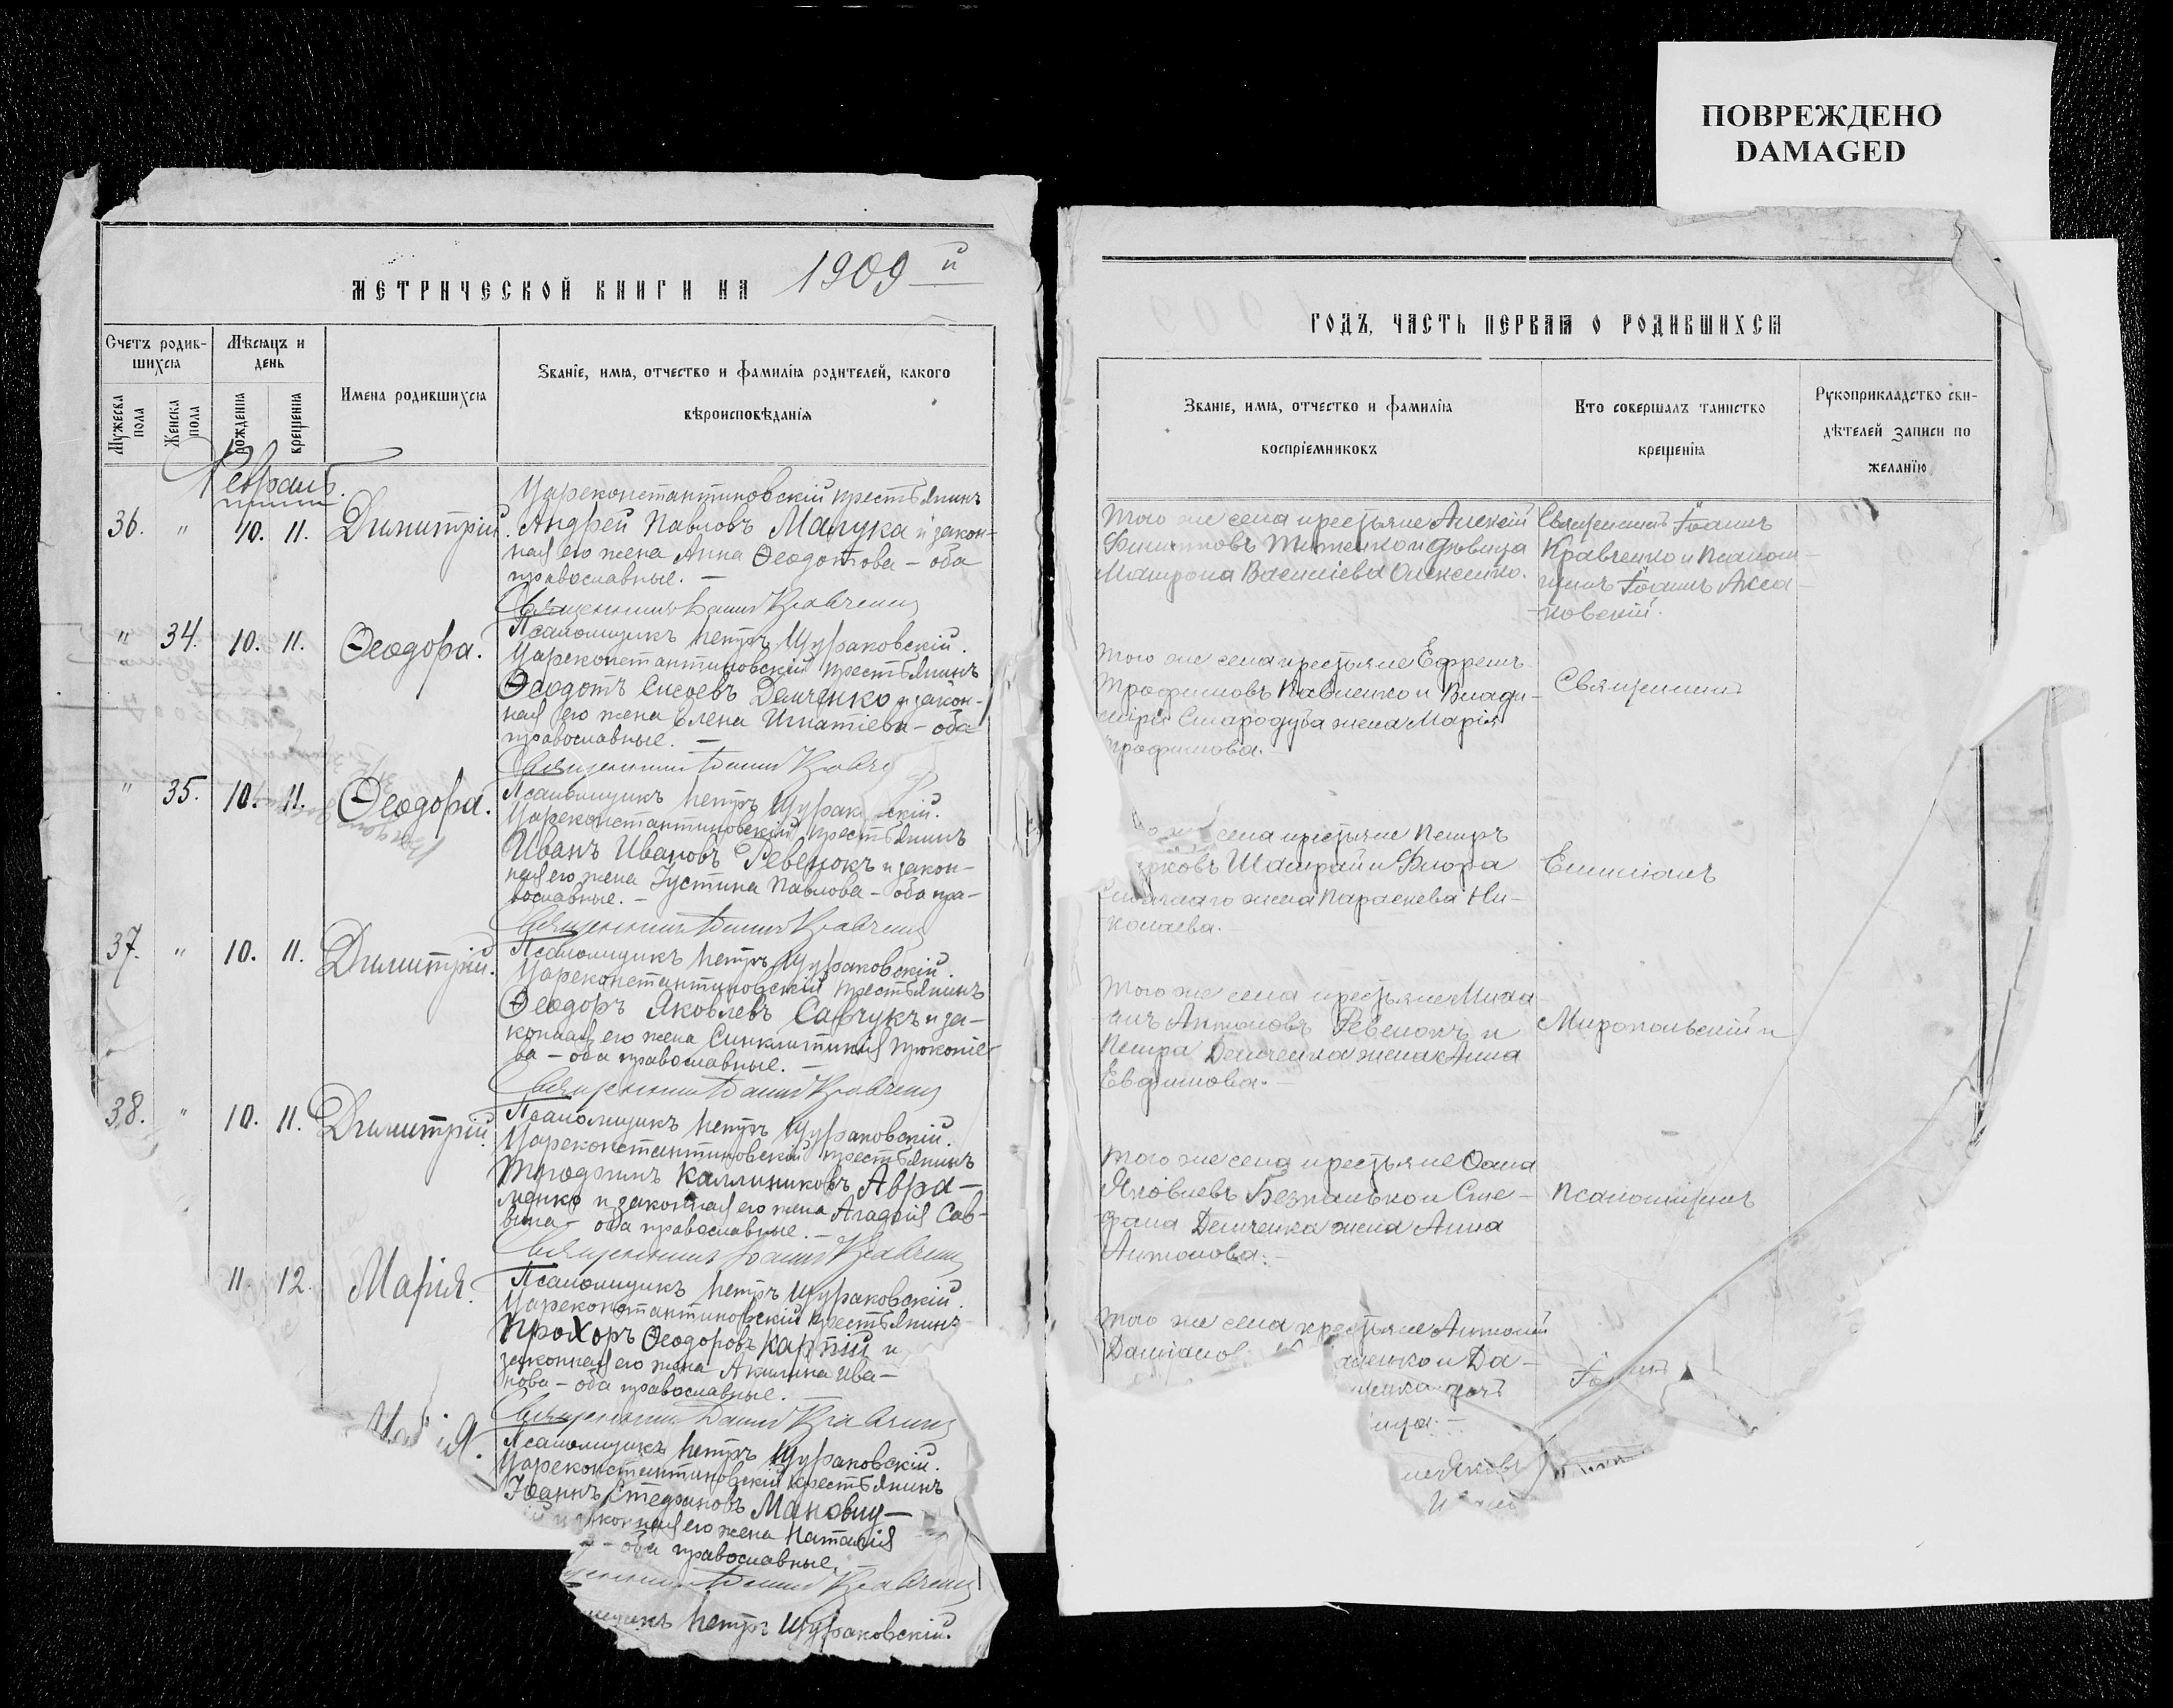 ПОВРЕЖДЕНО
DAMAGED
МЕТРИЧЕСКОЙ КНИГИ НА 1909 й
Счетъ родив-
шихся
Мѣсяцъ и
день
Имена родившихся
Званіе, имя, отчество и фамилія родителей, какого
вѣроисповѣданія
Мужеска
пола
Женска
пола
рожденія
крещенія
Февраль.
36. " 10. 11. Димитрій.
Цареконстантиновскій крестьянинъ
Андрей Павловъ Мацука и закон-
ная его жена Анна Ѳеодотова – оба
православные. –
Священникъ Іоаннъ Кравченко
Псаломщикъ Петръ Щураковскій.
" 34. 10. 11. Ѳеодора.
Цареконстантиновскій крестьянинъ
Ѳеодотъ Сисоевъ Демченко и закон-
ная его жена Елена Игнатіева – оба
православные. –
Священникъ Іоаннъ
Псаломщикъ Петръ
" 35. 10. 11. Ѳеодора.
Цареконстантиновскій крестьянинъ
Иванъ Ивановъ Ревенокъ и закон-
ная его жена Іустина Павлова – оба пра-
вославные. –
Священникъ Іоаннъ Кравченко
Псаломщикъ Петръ Щураковскій.
37. " 10. 11. Димитрій.
Цареконстантиновскій крестьянинъ
Ѳеодоръ Яковлевъ Савчукъ и за-
конная его жена Синклитикія Прокопіе-
ва – оба православные. –
Священникъ Іоаннъ Кравченко
Псаломщикъ Петръ Щураковскій.
38. " 10. 11. Димитрій.
Цареконстантиновскій крестьянинъ
Трофимъ Каллиниковъ Авра-
менко и законная его жена Агафія Сав-
вина – оба православные. –
Священникъ Іоаннъ Кравченко
Псаломщикъ Петръ Щураковскій.
11. 12. Марія.
Цареконстантиновскій крестьянинъ
Прохоръ Ѳеодоровъ Карпій и
законная его жена Акилина Ива-
нова – оба православные. –
Священникъ Іоаннъ Кравченко
Псаломщикъ Петръ Щураковскій.
Цареконстантиновскій крестьянинъ
Іоаннъ Стефановъ
его жена Наталія
– оба православные. –
Іоаннъ Кравченко
Петръ Щураковскій.
ГОДЪ, ЧАСТЬ ПЕРВАЯ О РОДИВШИХСЯ
Званіе, имя, отчество и фамилія
воспріемниковъ
Кто совершалъ таинство
крещенія
Рукоприкладство сви-
дѣтелей записи по
желанію
Того же села крестьяне Алексій
Филипповъ Тимченко и дѣвица
Матрона Василіева Олексенко.
Священникъ Іоаннъ
Кравченко и Псалом-
щикъ Іоаннъ
Того же села крестьяне Ефремъ
Трофимовъ Павленко и Влади-
міра Стародуба жена Марія
Трофимова.
Священникъ
села крестьяне Петръ
Шатрай и Флора
жена Параскева Ни-
колаева. –
Емиліанъ
Того же села крестьяне Миха-
илъ Антоновъ Ревенокъ и
Петра Демченка жена Анна
Евфимова. –
Миропольскій и
Того же села крестьяне Ѳома
Яковлевъ Безпалько и Сте-
фана Демченка жена Анна
Антонова. –
Псаломщикъ
Того же села крестьяне Антоній
и Да-